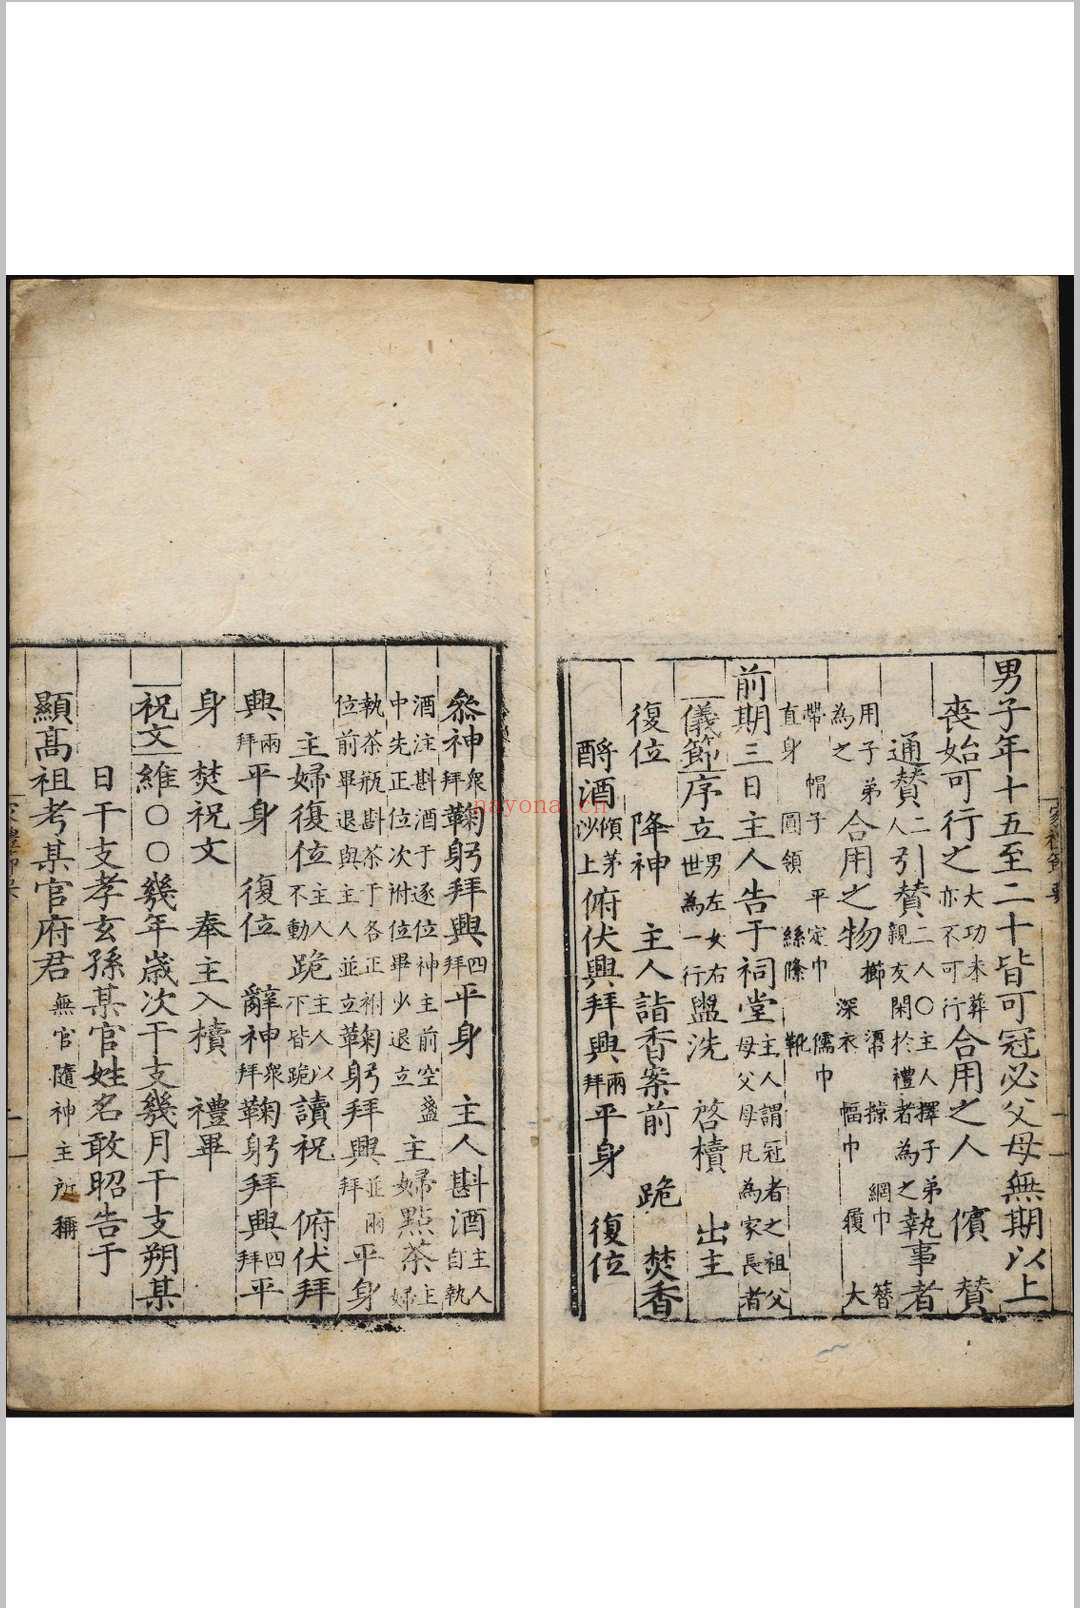 男子年十五至二十皆可冠必父母無期以上
喪始可行之大功未葬亦不可行合用之人 儐 賛
通賛二人引賛二人○主人擇子弟親友閑於禮者為之執事者
用子弟為之合用之物櫛 𢄼 掠 網巾 簪 深衣 幅巾 履 大
帶 帽子 平定巾 儒巾 直身 圓領 絲絛 靴
前期三日主人告于祠堂主人謂冠者之祖父母父母凡為家長者父
儀節序立男左女右世為一行盥洗 啓櫝 出主
復位 降神 主人詣香案前 跪 焚香
酹酒傾茅沙上俯伏興拜興兩拜平身 復位
叅神衆拜鞠躬拜興四拜平身 主人斟酒主人自執
酒注斟酒于逐位神主前空盞中先正位次祔位畢少退立主婦㸃茶主婦
執茶瓶斟茶于各正祔位前畢退與主人並立鞠躬拜興並兩拜平身
主婦復位主人不動跪主人以下皆跪讀祝 俯伏拜
興兩拜平身 復位 辭神衆拜鞠躬拜興四拜平
身 焚祝文 奉主入櫝 禮畢
祝文維○○幾年歲次干支幾月干支朔某
日干支孝玄孫某官姓名敢昭告于
顯髙祖考某官府君無官隨神主所稱
nayona.cn